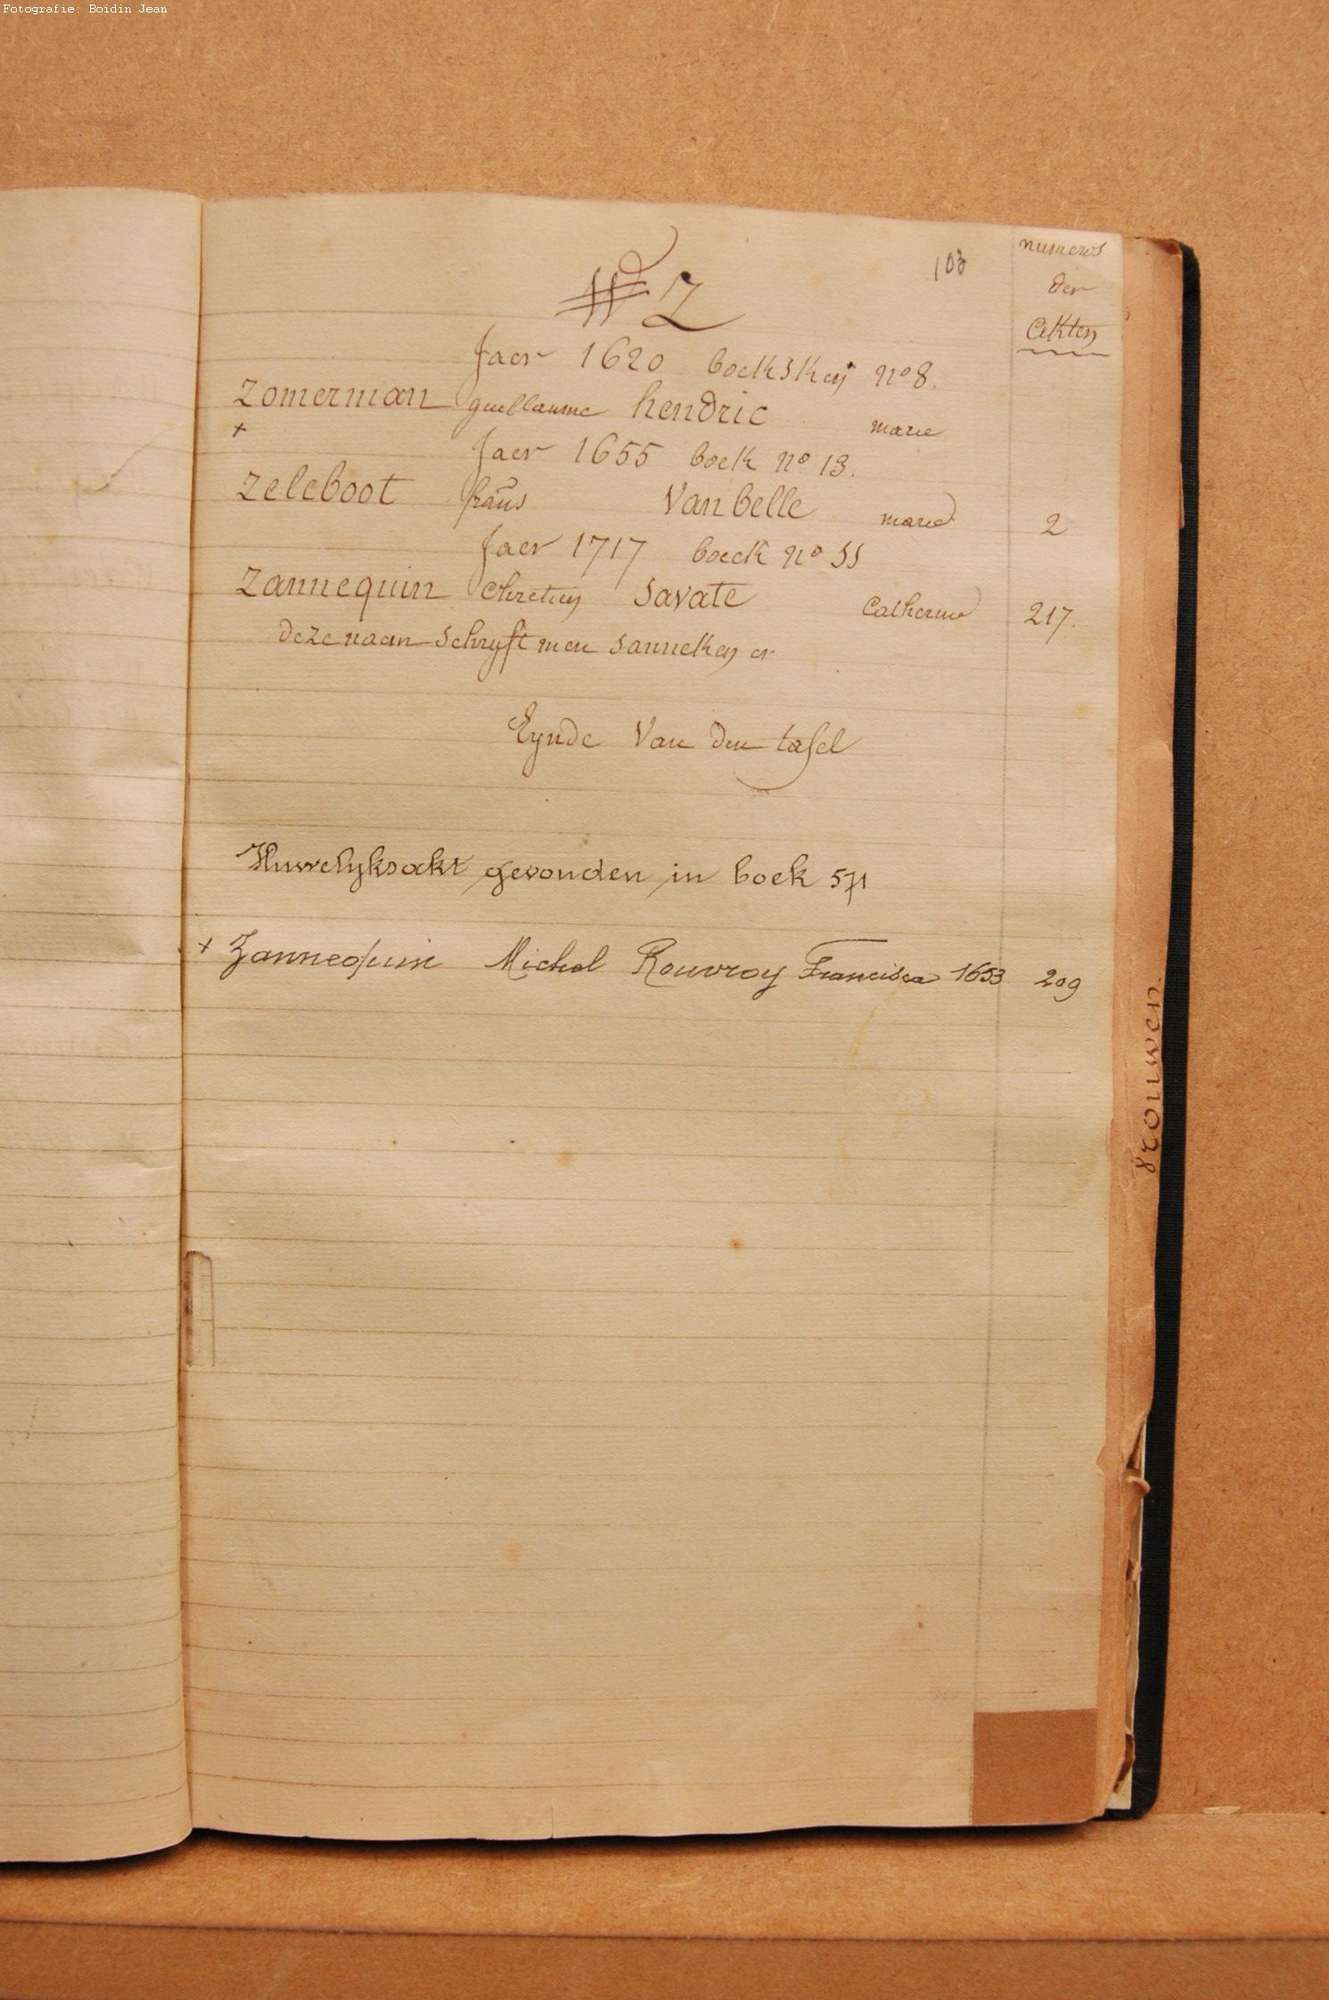 Fotografie: Boidin Jean
103
numeros
der
akten
Z
Jaer 1620 boeksken no 8.
Zomerman guillaume hendric marie
+
Jaer 1655 boek no 13.
Zeleboot frans Van belle marie 2
Jaer 1717 boeck no 55
Zannequin chretien savate Catherine 217.
deze naam schryft men sanneken
Eynde Van den tafel
Huwelyksakt gevonden in boek 571
+ Zannequin Michel Rouvroy Francisca 1653 209
vrouwen.